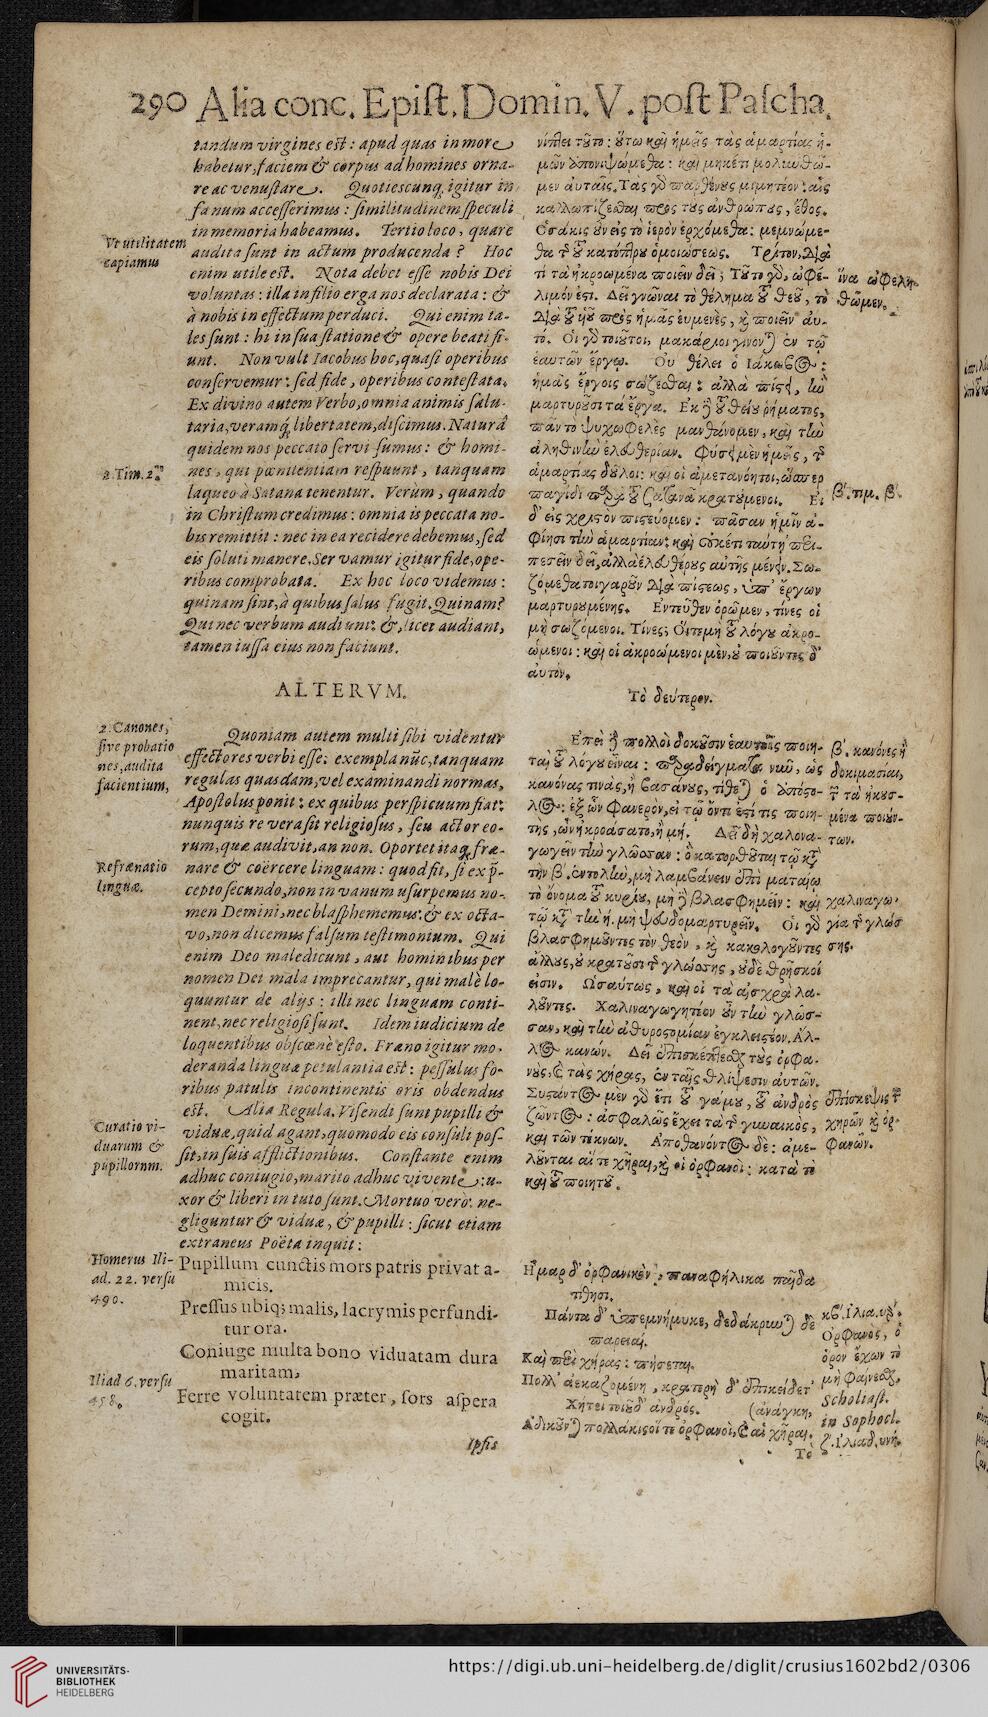 290 Alia conc. Epiſt. Domin. V. poſt Paſcha.
tandum virgines eſt: apud quas in more
habetur, faciem & corpus ad homines orna-
re ac venuſtare. Quotieſcunq; igitur in
fanum acceſſerimus: ſimilitudinem ſpeculi
in memoria habeamus. Tertio loco, quare
Vt utilitatem
capiamus
audita ſunt in actum producenda? Hoc
enim utile eſt. Nota debet eſſe nobis Dei
voluntas: illa in filio erga nos declarata: &
à nobis in effectum perduci. Qui enim ta-
les ſunt: hi in ſua ſtatione & opere beati fi-
unt. Non vult Iacobus hoc, quaſi operibus
conſervemur: ſed fide, operibus conteſtata.
Ex divino autem Verbo, omnia animis ſalu-
taria, veramq; libertatem, diſcimus. Naturâ
quidem nos peccato ſervi ſumus: & homi-
2. Tim. 2.
nes, qui pœnitentiam reſpuunt, tanquam
laqueo à Satana tenentur. Verùm, quando
in Chriſtum credimus: omnia is peccata no-
bis remittit: nec in ea recidere debemus, ſed
eis ſoluti manere. Servamur igitur fide, ope-
ribus comprobata. Ex hoc loco videmus:
quinam ſint, à quibus ſalus fugit. Quinam?
Qui nec verbum audiunt: &, licet audiant,
tamen iuſſa eius non faciunt.
ALTERVM.
2. Canones,
ſive probatio
nes, audita
facientium,
Quoniam autem multi ſibi videntur
effectores verbi eſſe: exempla nũc, tanquam
regulas quasdam, vel examinandi normas,
Apoſtolus ponit: ex quibus perſpicuum fiat:
nunquis re vera ſit religioſus, ſeu actor eo-
rum, quæ audivit, an non. Oportet itaq; fræ-
Refrænatio
linguæ.
nare & coërcere linguam: quod fit, ſi ex p̃-
cepto ſecundo, non in vanum uſurpemus no-
men Domini, nec blaſphememus: & ex octa-
vo, non dicemus falſum teſtimonium. Qui
enim Deo maledicunt, aut hominibus per
nomen Dei mala imprecantur, qui malè lo-
quuntur de alijs: illi nec linguam conti-
nent, nec religioſi ſunt. Idem iudicium de
loquentibus obſcœnè eſto. Fræno igitur mo-
deranda linguæ petulantia eſt: peſſulus fo-
ribus patulis incontinentis oris obdendus
eſt. Alia Regula. Viſendi ſunt pupilli &
Curatio vi-
duarum &
pupillorum.
viduæ, quid agant, quomodo eis conſuli poſ-
ſit, in ſuis afflictionibus. Conſtante enim
adhuc coniugio, marito adhuc vivente: u-
xor & liberi in tuto ſunt. Mortuo verò: ne-
gliguntur & viduæ, & pupilli: ſicut etiam
extraneus Poëta inquit:
Homerus Ili-
ad. 22. verſu
490.
Pupillum cunctis mors patris privat a-
micis.
Preſſus ubiq; malis, lacrymis perfundi-
tur ora.
Coniuge multa bono viduatam dura
maritam,
Iliad 6. verſu
458.
Ferre voluntatem præter, ſors aſpera
cogit.
Ipſis
νίπτει τοῦτο: οὕτω καὶ ἡμᾶς τὰς ἁμαρτίας ἡ-
μῶν ἀπονιψώμεθα: καὶ μηκέτι μολυνθῶ-
μεν αὐταῖς. Τὰς γὸ παρθένους μιμητέον: αἷς
καλλωπίζεσθαι πρὸς τοὺς ἀνθρώπους, ἔθος.
Ὁσάκις οὖν εἰς τὸ ἱερὸν ἐρχόμεθα: μεμνώμε-
θα τῆς τοῦ κατόπτρου ὁμοιώσεως. Τρίτον, Διὰ
τί τὰ ἠκροωμένα ποιεῖν δεῖ; Τοῦτο γὸ, ὠφέ-
ἵνα ὠφελη-
θῶμεν.
λιμόν ἐστι. Δεῖ γνῶναι τὸ θέλημα τοῦ θεοῦ, τὸ
Διὰ τοῦ ὑοῦ πρὸς ἡμᾶς εὐμενὲς, καὶ ποιεῖν αὐ-
τό. Οἱ γὸ τοιοῦτοι, μακάριοι γίνονται ἐν τῷ
ἑαυτῶν ἔργῳ. Οὐ θέλει ὁ Ἰάκωβος:
ἡμᾶς ἔργοις σώζεσθαι: ἀλλὰ πίστει, ἣν
μαρτυροῦσι τὰ ἔργα. Ἐκ δὲ τοῦ θείου ῥήματος,
πᾶν τὸ ψυχωφελὲς μανθάνομεν, καὶ τὴν
ἀληθινὴν ἐλευθερίαν. Φύσει μὲν ἡμεῖς, τῆς
ἁμαρτίας δοῦλοι: καὶ οἱ ἀμετανόητοι, ὥσπερ
παγίδι παρὰ τοῦ Σατανᾶ κρατούμενοι. Εἰ
β΄. τιμ. β΄.
δ' εἰς χριστὸν πιστεύομεν: πᾶσαν ἡμῖν ἀ-
φίησι τὴν ἁμαρτίαν: καὶ οὐκέτι ταύτῃ περι-
πεσεῖν δεῖ, ἀλλὰ ἐλευθέρους αὐτῆς μένειν. Σω-
ζόμεθα τοιγαροῦν Διὰ πίστεως, ὑπ' ἔργων
μαρτυρουμένης. Ἐντεῦθεν ὁρῶμεν, τίνες οἱ
μὴ σωζόμενοι. Τίνες; Οἵτε μὴ τοῦ λόγου ἀκρο-
ώμενοι: καὶ οἱ ἀκροώμενοι μὲν, οὐ ποιοῦντες δ'
αὐτόν.
Τὸ δεύτερον.
Ἐπεὶ δὲ πολλοὶ δοκοῦσιν ἑαυτοῖς ποιη-
ταὶ τοῦ λόγου εἶναι: παραδείγματα νῦν, ὡς
κανόνας τινὰς, ἢ βασάνους, τίθεται ὁ ἀπόστο-
λος: ἐξ ὧν φανερὸν, εἰ τῷ ὄντι ἐστί τις ποιη-
τὴς, ὧν ἠκροάσατο, ἢ μή. Δεῖ δὴ χαλινα-
β΄. κανόνες ἢ
δοκιμασίαι,
τῶν τὰ ἠκουσ-
μένα ποιούν-
των.
γωγεῖν τὴν γλῶσσαν: ὃ κατορθοῦται τῷ κατὰ
τὴν β΄. ἐντολὴν, μὴ λαμβάνειν ἐπὶ ματαίῳ
τὸ ὄνομα τοῦ κυρίου, μὴ δὲ βλασφημεῖν: καὶ
τῷ κατὰ τὴν η΄. μὴ ψευδομαρτυρεῖν. Οἱ γὸ
χαλιναγω-
γία τῆς γλώσ
σης.
βλασφημοῦντες τὸν θεὸν, καὶ κακολογοῦντες
ἄλλους, οὐ κρατοῦσι τῆς γλώσσης, οὐδὲ θρῆσκοί
εἰσιν. Ὡσαύτως, καὶ οἱ τὰ αἰσχρὰ λα-
λοῦντες. Χαλιναγωγητέον οὖν τὴν γλῶσ-
σαν, καὶ τὴν ἀθυροστομίαν ἐγκλειστέον. Ἄλ-
λος κανών. Δεῖ ἐπισκέπτεσθαι τοὺς ὀρφα-
νοὺς, καὶ τὰς χήρας, ἐν ταῖς θλίψεσιν αὐτῶν.
Συστάντος μὲν γὸ ἔτι τοῦ γάμου, τοῦ ἀνδρὸς
ζῶντος: ἀσφαλῶς ἔχει τὰ τῆς γυναικὸς,
καὶ τῶν τέκνων. Ἀποθανόντος δὲ: ἀμε-
λοῦνται αἵ τε χῆραι, καὶ οἱ ὀρφανοὶ: κατὰ τὸ
καὶ τοῦ ποιητοῦ.
ἐπίσκεψις τῶν
χηρῶν καὶ ὀρ-
φανῶν.
Ἦμαρ δ' ὀρφανικὸν, παναφήλικα παῖδα
τίθησι.
Πάντα δ' ὑπεμνήμυκε, δεδάκρυνται δὲ
παρειαί.
κβ΄. ἰλια. υϟ΄.
Ὀρφανὸς, ὁ
ὅρον ἔχων τὸ
μὴ φαίνεσθαι,
Scholiaſt.
in Sophocl.
Καὶ περὶ χήρας: πήσεται.
Πόλλ' ἀεκαζομένη, κρατερὴ δ' ἐπικείσετ'
Χήτει τοιοῦδ' ἀνδρός. (ἀνάγκη,
Ἀδικοῦνται πολλάκις οἵ τε ὀρφανοὶ, καὶ αἱ χῆραι.
ζ΄. Ἰλιαδ. υνή.
Τὸ
UNIVERSITÄTS-
BIBLIOTHEK
HEIDELBERG
https://digi.ub.uni-heidelberg.de/diglit/crusius1602bd2/0306